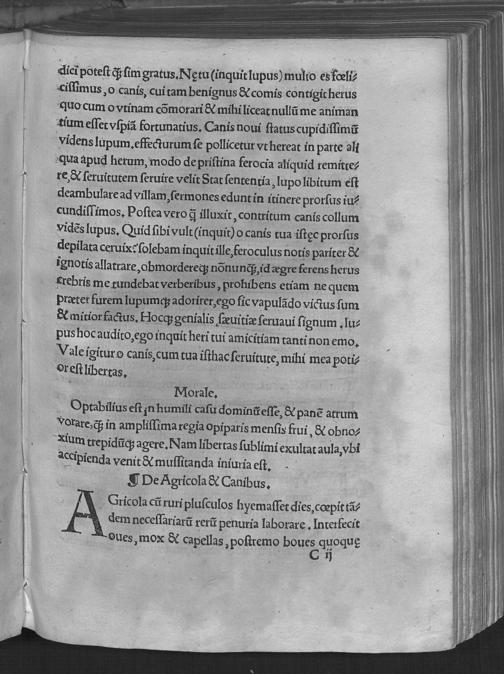 dici potest q̃ sim gratus. Nę tu (inquit lupus) multo es fœli⸗
cissimus, o canis, cui tam benignus & comis contigit herus
quo cum o vtinam cõmorari & mihi liceat nullũ me animan
tium esset vspiã fortunatius. Canis noui status cupidissimũ
videns lupum, effecturum se pollicetur vt hereat in parte ali
qua apud herum, modo de pristina ferocia aliquid remitte⸗
re, & seruitutem seruire velit Stat sententia, lupo libitum est
deambulare ad villam, sermones edunt in itinere prorsus iu⸗
cundissimos. Postea vero q̃ illuxit, contritum canis collum
vidẽs lupus. Quid sibi vult (inquit) o canis tua istęc prorsus
depilata ceruix? solebam inquit ille, feroculus notis pariter &
ignotis allatrare, obmordereq; nõnunq̃, id ægre ferens herus
crebris me tundebat verberibus, prohibens etiam ne quem
præter furem lupumq; adorirer, ego sic vapulãdo victus sum
& mitior factus. Hocq; genialis sæuitiæ seruaui signum. lu⸗
pus hoc audito, ego inquit heri tui amicitiam tanti non emo.
Vale igitur o canis, cum tua isthac seruitute, mihi mea poti⸗
or est libertas.
Morale.
Optabilius est in humili casu dominũ esse, & panẽ atrum
vorare, q̃ in amplissima regia opiparis mensis frui, & obno⸗
xium trepidũq; agere. Nam libertas sublimi exultat aula, vbi
accipienda venit & mussitanda iniuria est.
¶ De Agricola & Canibus.
AGricola cũ ruri plusculos hyemasset dies, cœpit tã⸗
dem necessariarũ rerũ penuria laborare. Interfecit
oues, mox & capellas, postremo boues quoquę
C ij